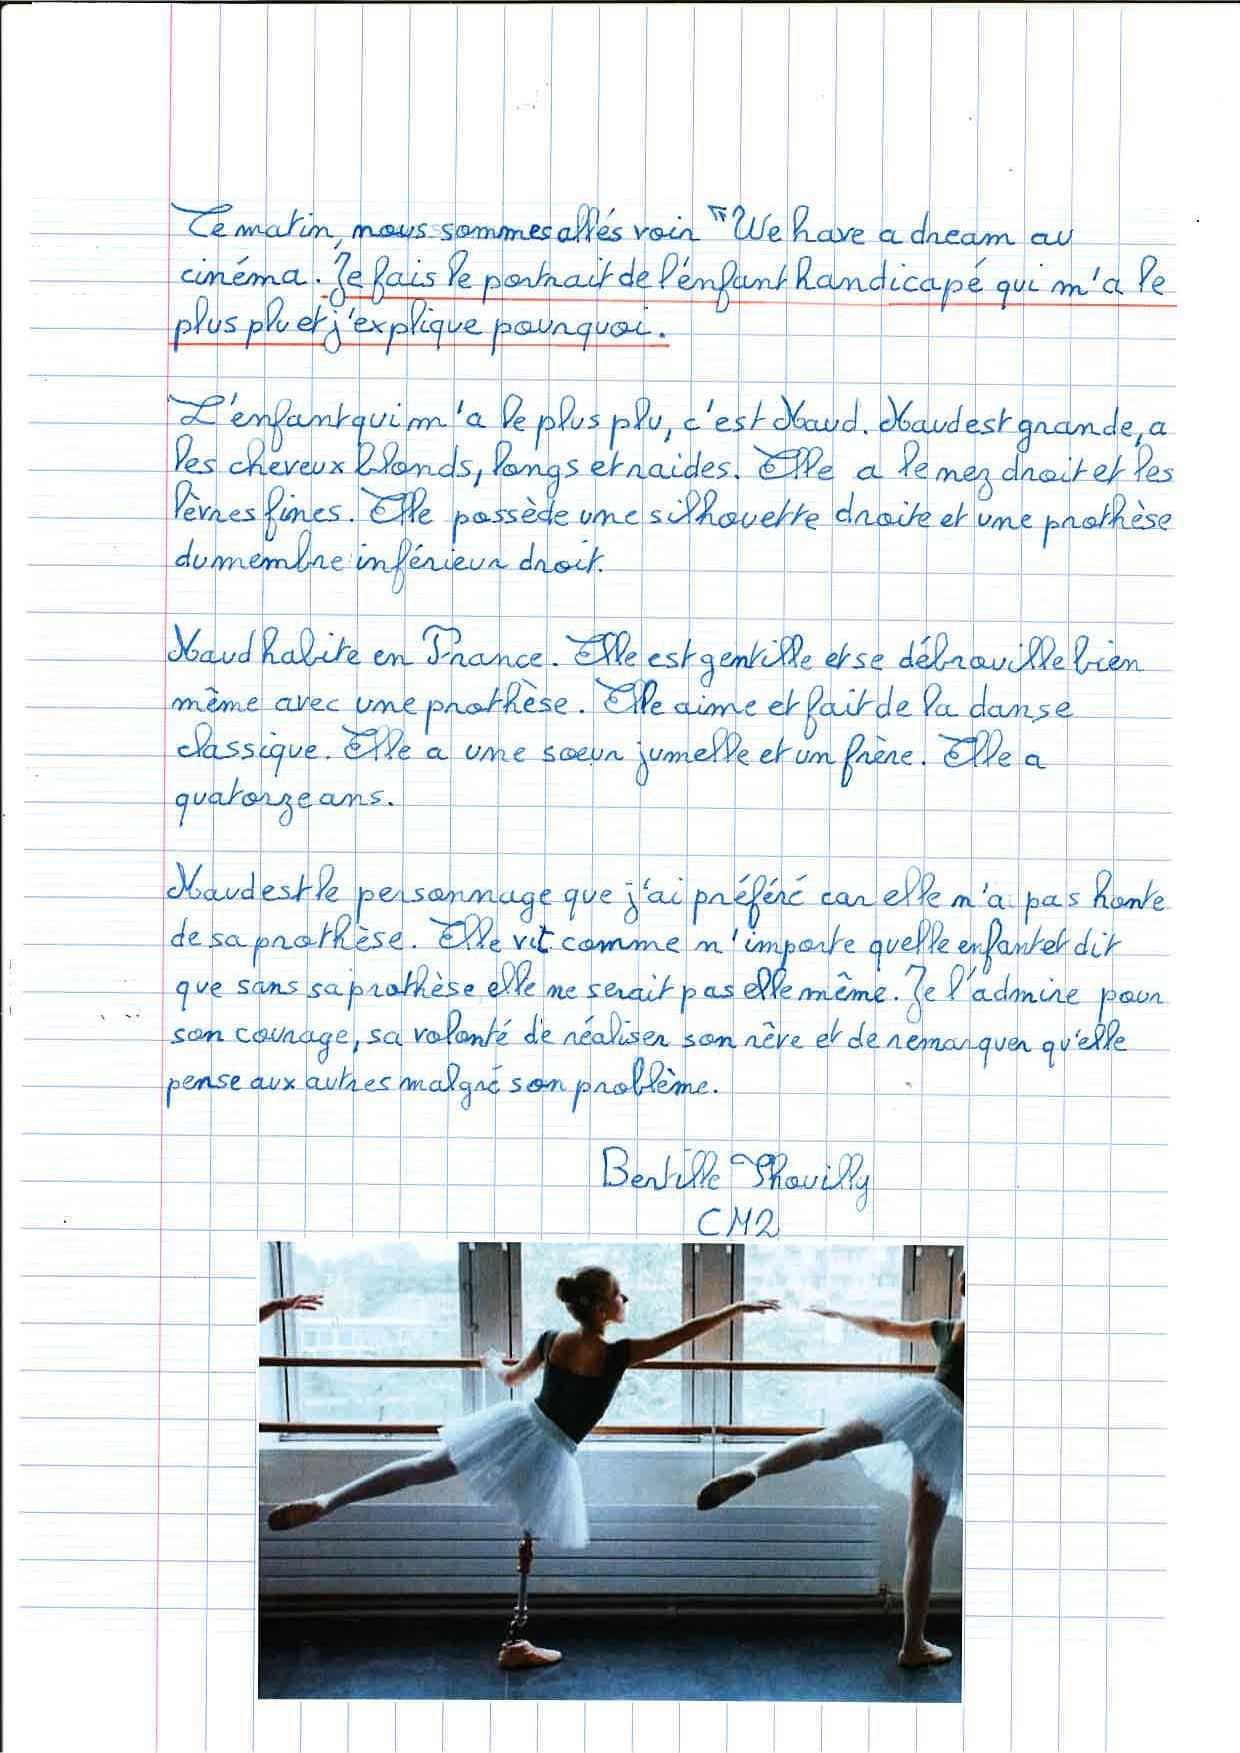 Ce matin, nous sommes allés voir "We have a dream au
cinéma. Je fais le portrait de l'enfant handicapé qui m'a le
plus plu et j'explique pourquoi.
L'enfant qui m'a le plus plu, c'est Maud. Maud est grande, a
les cheveux blonds, longs et raides. Elle a le nez droit et les
lèvres fines. Elle possède une silhouette droite et une prothèse
du membre inférieur droit.
Maud habite en France. Elle est gentille et se débrouille bien
même avec une prothèse. Elle aime et fait de la danse
classique. Elle a une sœur jumelle et un frère. Elle a
quatorze ans.
Maud est le personnage que j'ai préféré car elle n'a pas honte
de sa prothèse. Elle vit comme n'importe quelle enfant et dit
que sans sa prothèse elle ne serait pas elle même. Je l'admire pour
son courage, sa volonté de réaliser son rêve et de remarquer qu'elle
pense aux autres malgré son problème.
Bertille Thouilly
CM2